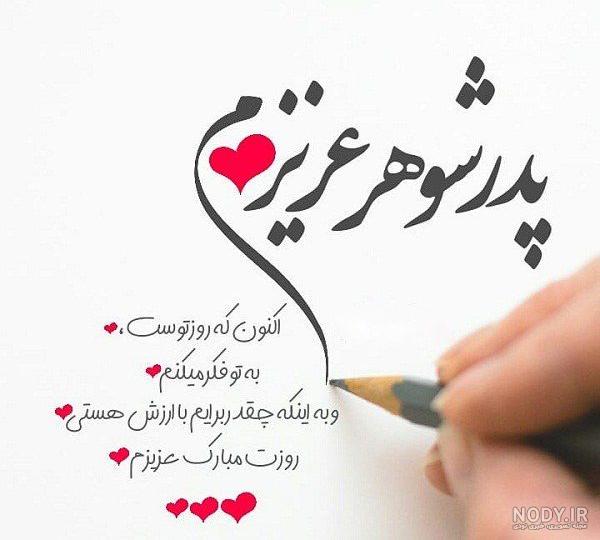 پدرشوهر عزیزم
اکنون که روز توست،
به تو فکر میکنم
و به اینکه چقدر برایم با ارزش هستی
روزت مبارک عزیزم
NODY.IR